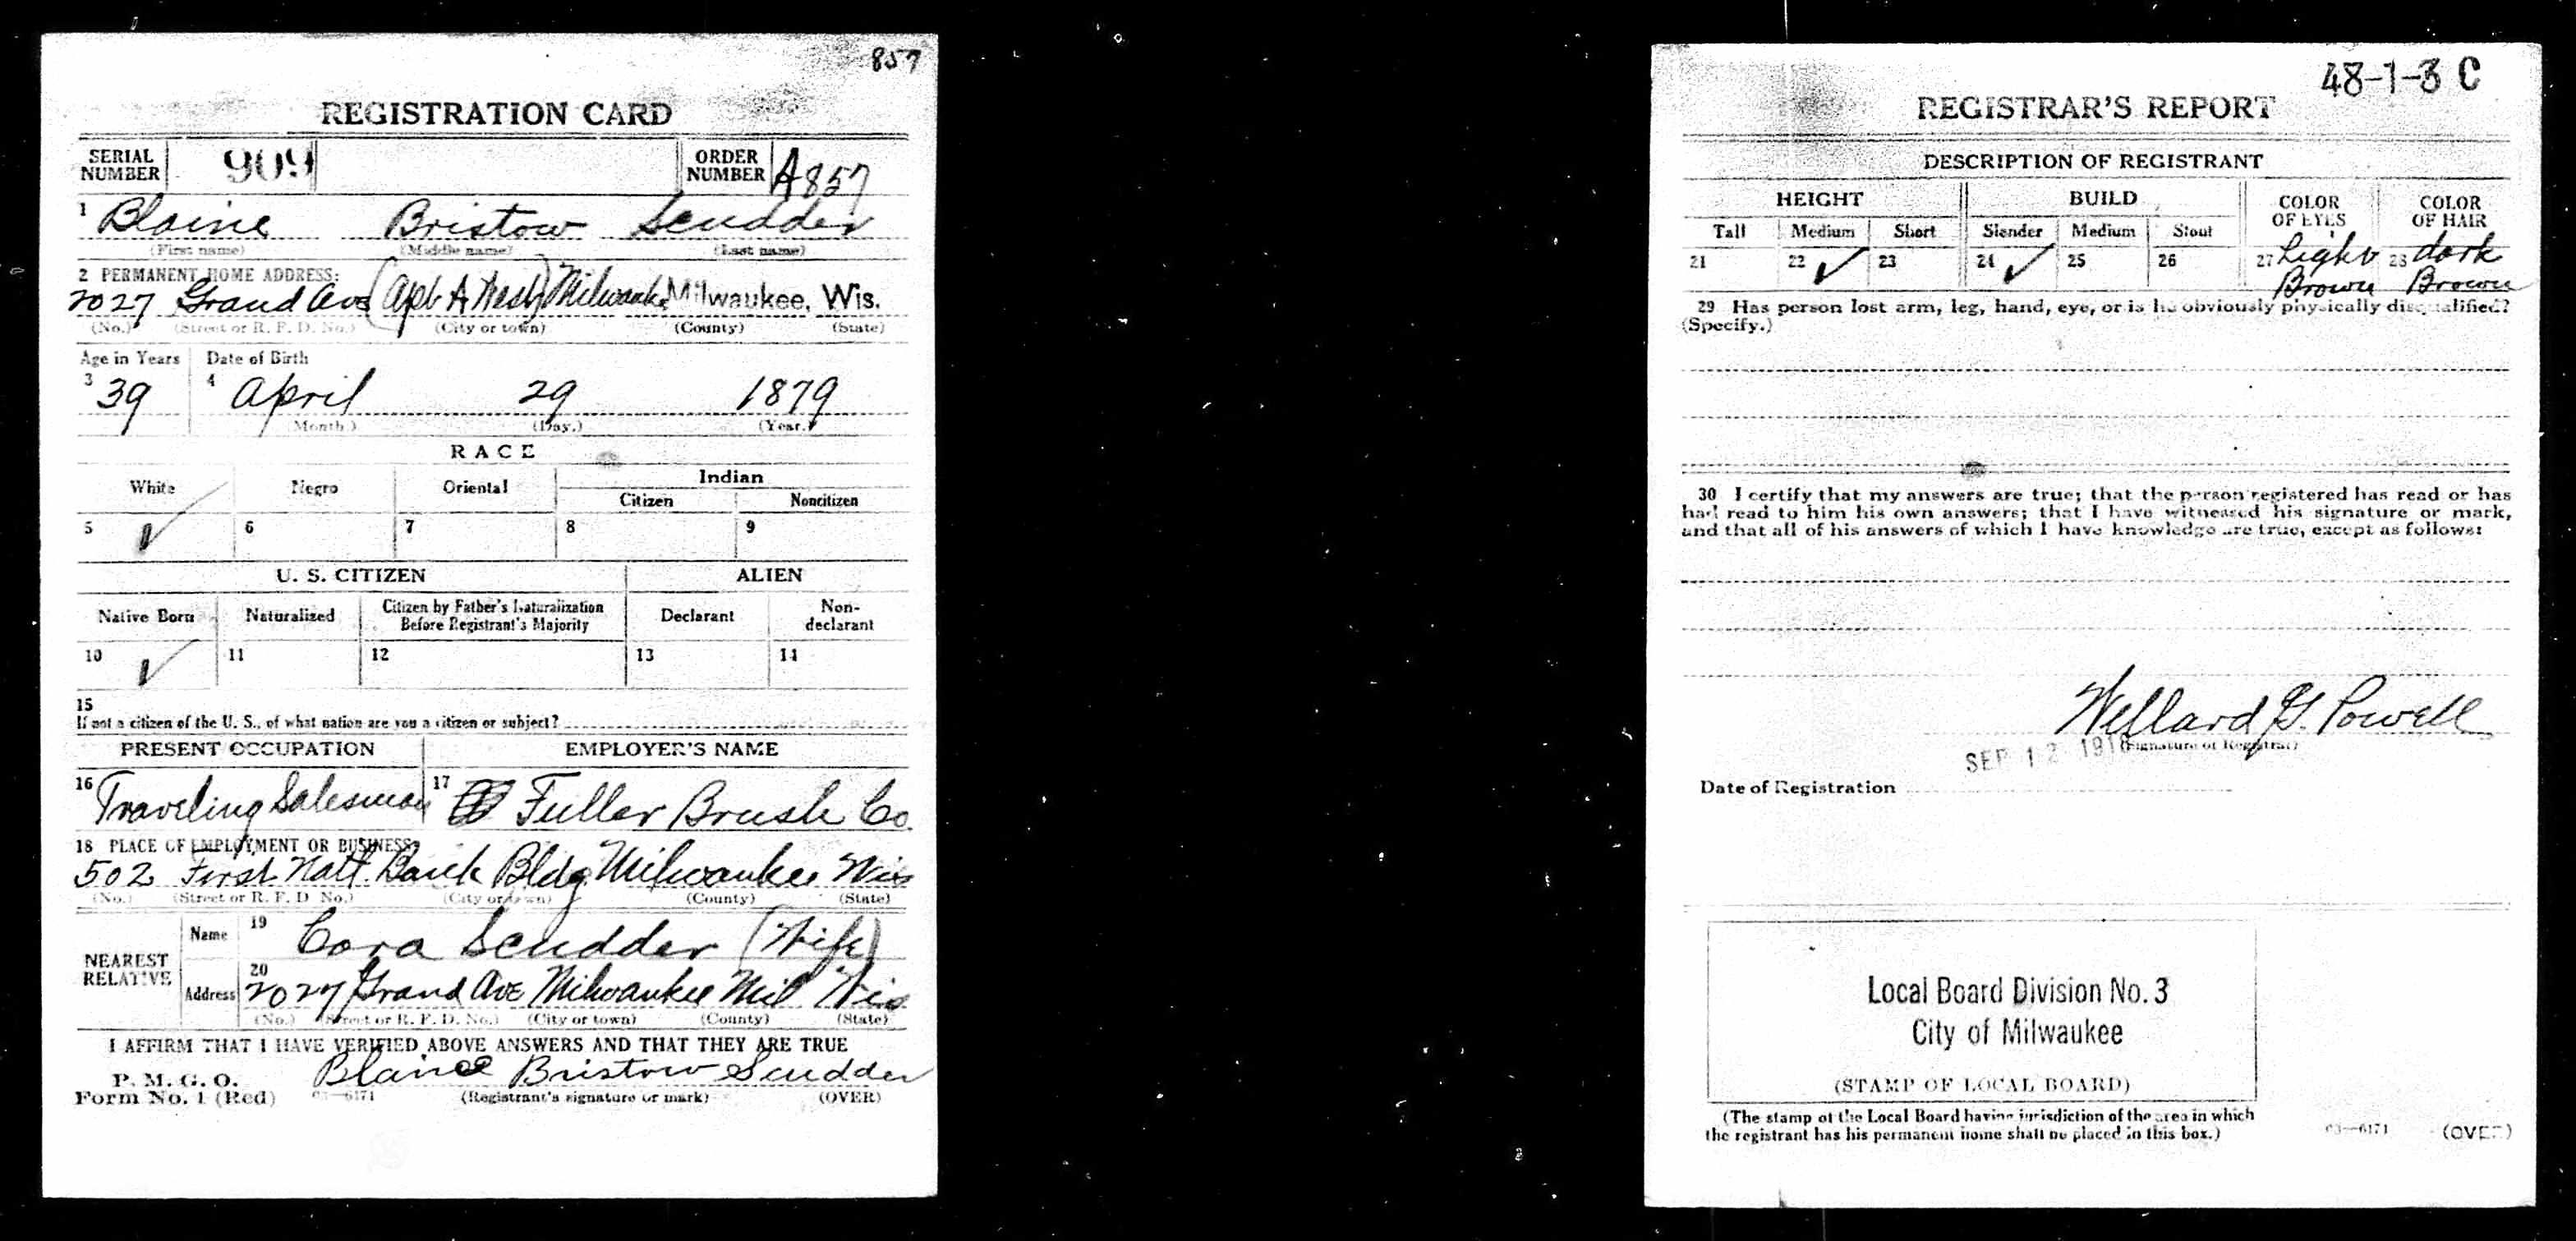 857
REGISTRATION CARD
SERIAL NUMBER 909 ORDER NUMBER A857
1 Blaine Bristow Scudder
(First name) (Middle name) (Last name)
2 PERMANENT HOME ADDRESS:
2027 Grand Ave (Apt A West) Milwaukee Milwaukee, Wis.
(No.) (Street or R. F. D. No.) (City or town) (County) (State)
Age in Years Date of Birth
3 39 4 April 29 1879
(Month.) (Day.) (Year.)
RACE
White Negro Oriental Indian
Citizen Noncitizen
5 ✓ 6 7 8 9
U. S. CITIZEN ALIEN
Native Born Naturalized Citizen by Father's Naturalization Before Registrant's Majority Declarant Non-declarant
10 ✓ 11 12 13 14
15
If not a citizen of the U. S., of what nation are you a citizen or subject?
PRESENT OCCUPATION EMPLOYER'S NAME
16 Traveling Salesman 17 Fuller Brush Co.
18 PLACE OF EMPLOYMENT OR BUSINESS:
502 First Natl Bank Bldg Milwaukee Wis
(No.) (Street or R. F. D. No.) (City or town) (County) (State)
NEAREST RELATIVE Name 19 Cora Scudder (Wife)
Address 20 2027 Grand Ave Milwaukee Mil Wis
(No.) (Street or R. F. D. No.) (City or town) (County) (State)
I AFFIRM THAT I HAVE VERIFIED ABOVE ANSWERS AND THAT THEY ARE TRUE
P. M. G. O.
Form No. 1 (Red) 03—6171 Blaine Bristow Scudder
(Registrant's signature or mark) (OVER)
48-1-3 C
REGISTRAR'S REPORT
DESCRIPTION OF REGISTRANT
HEIGHT BUILD COLOR OF EYES COLOR OF HAIR
Tall Medium Short Slender Medium Stout
21 22 ✓ 23 24 ✓ 25 26 27 Light Brown 28 dark Brown
29 Has person lost arm, leg, hand, eye, or is he obviously physically disqualified?
(Specify.)
30 I certify that my answers are true; that the person registered has read or has
had read to him his own answers; that I have witnessed his signature or mark,
and that all of his answers of which I have knowledge are true, except as follows:
Willard G. Powell
(Signature of Registrar)
SEP 12 1918
Date of Registration
Local Board Division No. 3
City of Milwaukee
(STAMP OF LOCAL BOARD)
(The stamp of the Local Board having jurisdiction of the area in which
the registrant has his permanent home shall be placed in this box.)
03—6171 (OVER)